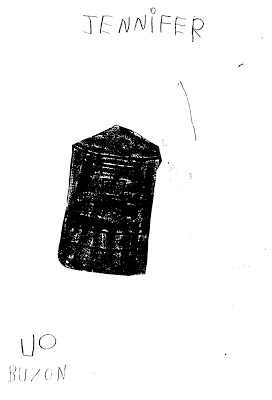 JENNIFER
UO
BUZON